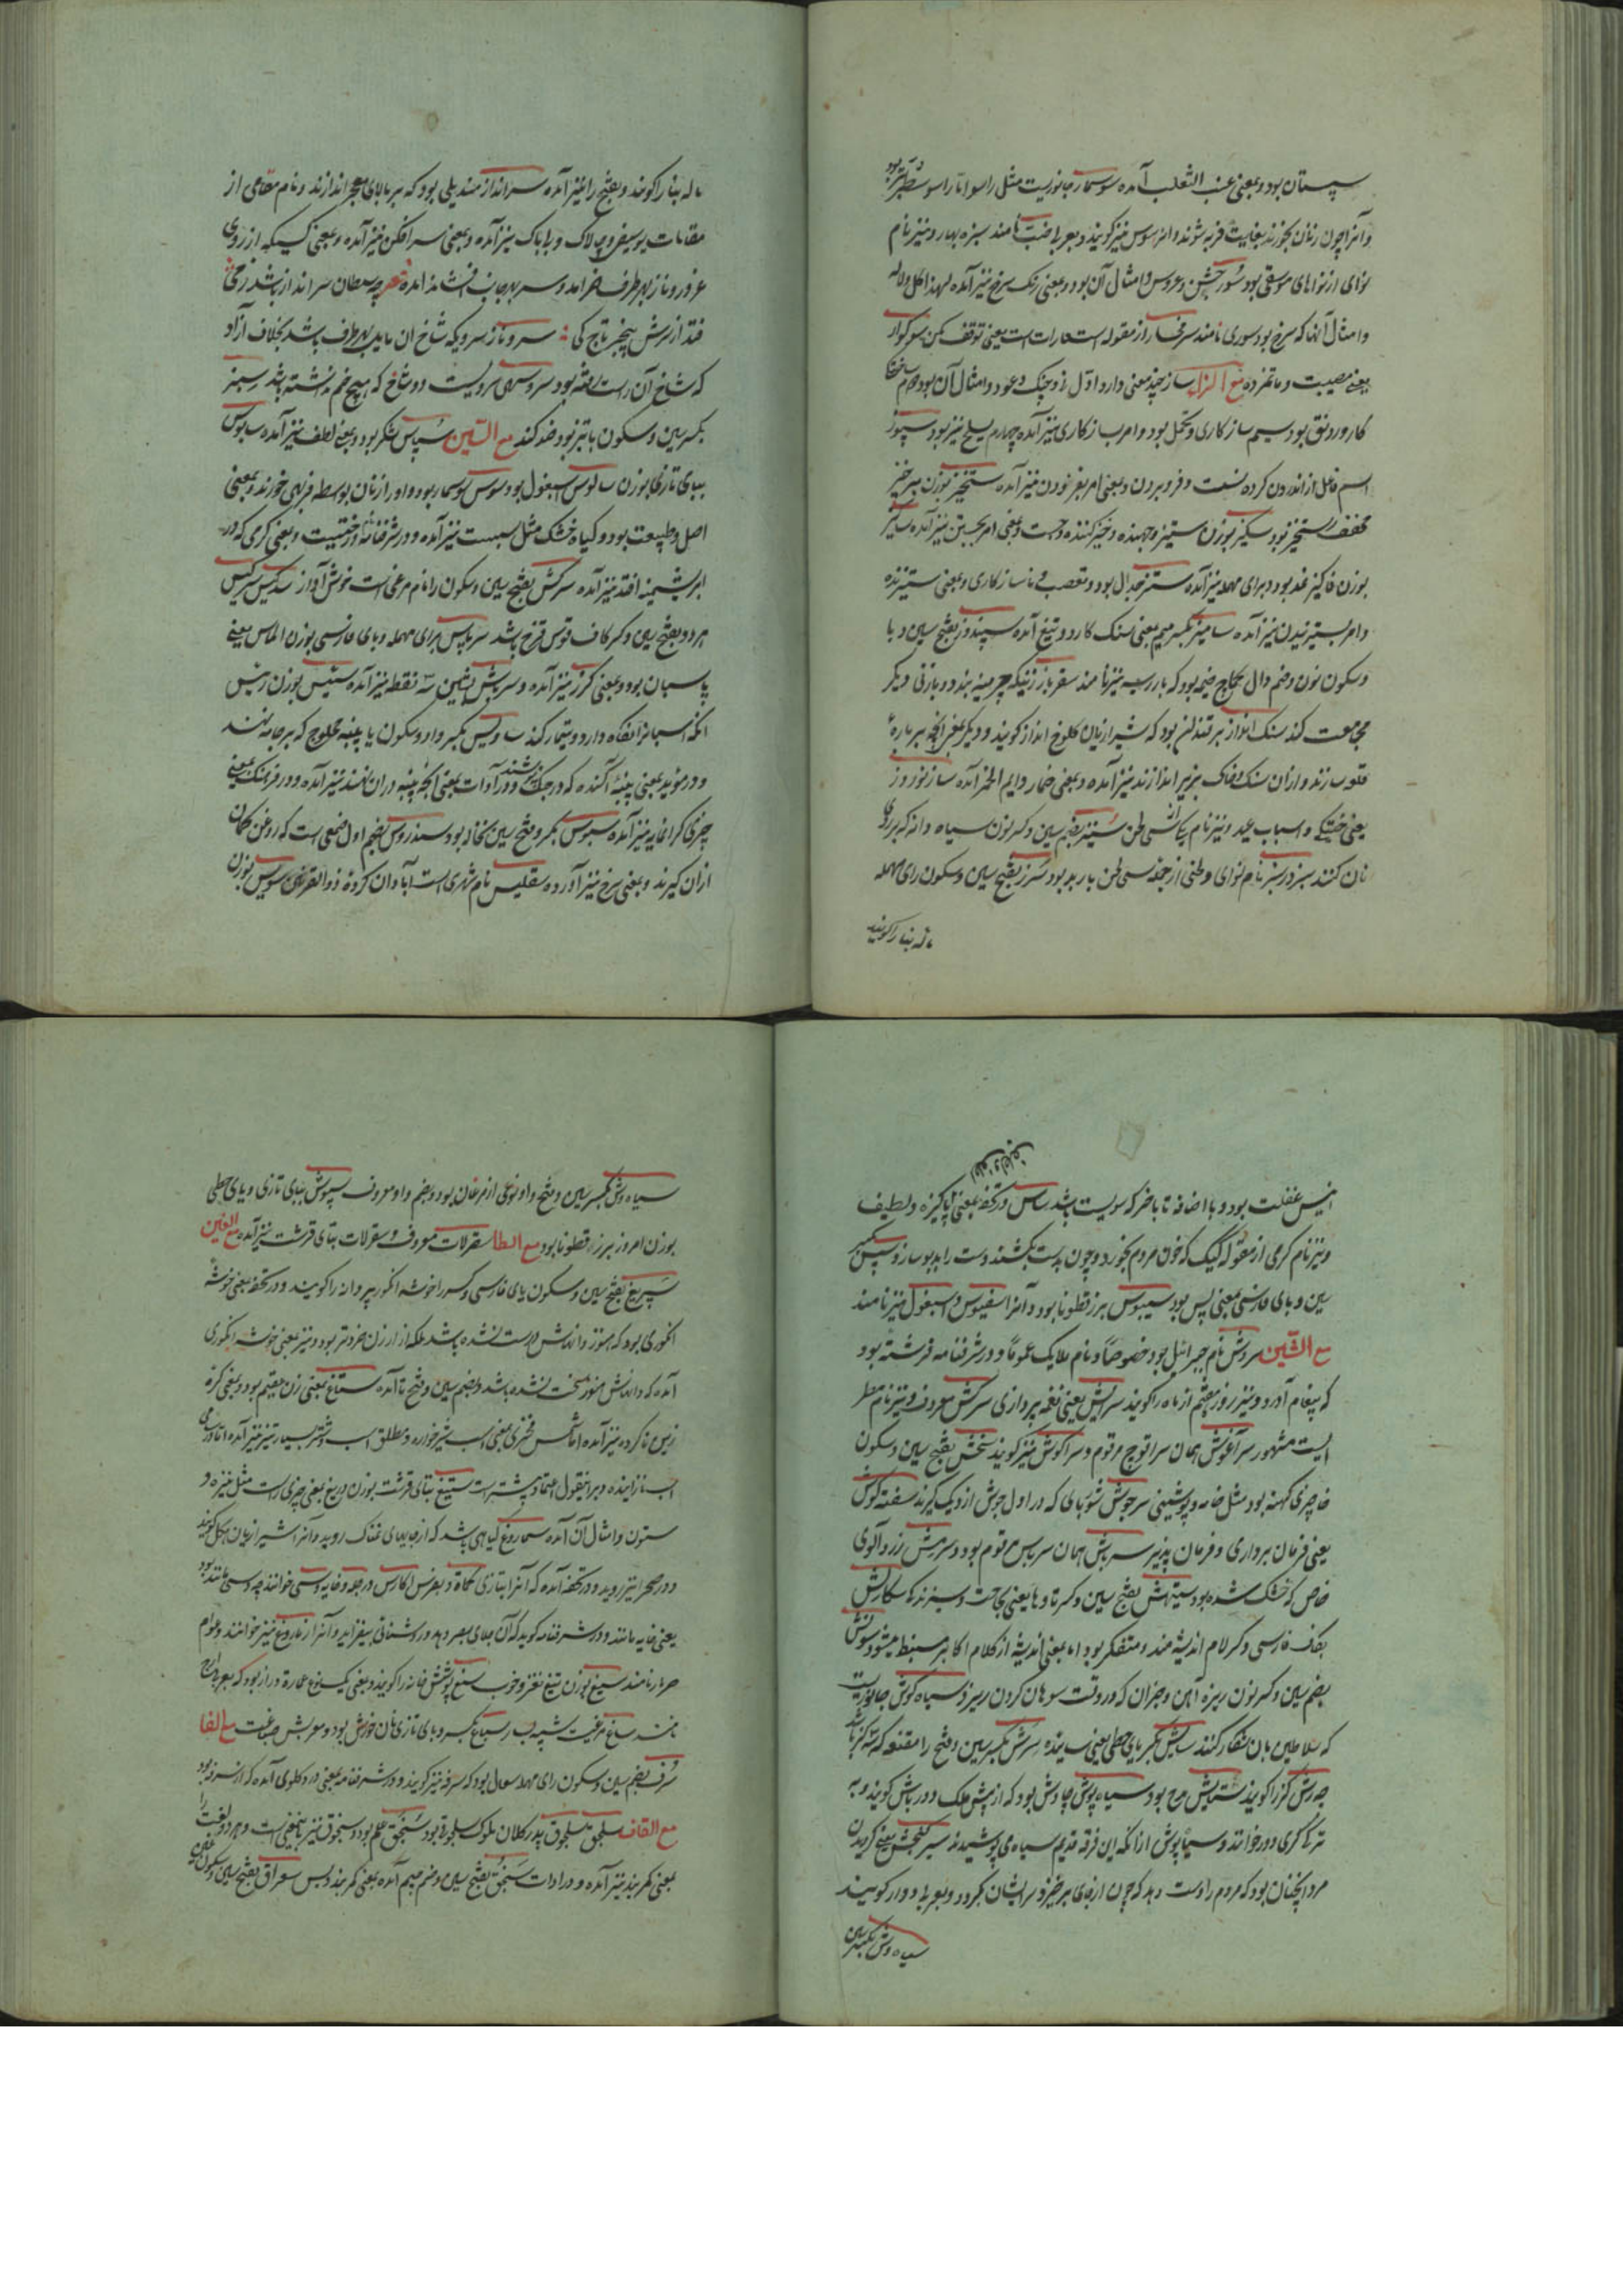 سپستان بود و بمعنی عنب الثعلب آمده سوسمار جانوریست مثل راسو اما از راسو سطبرتر بود
و آنرا چون زنان بخورند بغایت فربه شوند و انرا سوس نیز کویند و بعربی ضب نامند سبزه بهار و نیز نام
نوای از نواهای موسقی بود سور جشن و عروسی و امثال آن بود و بمعنی رنک سرخ نیز آمده لهذا کل و لاله
و امثال آنها که سرخ بود سوری نامند سرمخار از مقوله استعارات است یعنی توقف مکن سوکوار
یعنی مصیبت و ماتم زده مع الزا ساز چند معنی دارد اول نی و چنک و عود و امثال آن بود دوم ساختکی
کار و رونق بود سیم سازکاری و تحمل بود و امر بسازکاری نیز آمده چهارم سلح نیز بود سپوز
اسم فاعل از اندرون کرده نست و فرو بردن و بمعنی امر بفرو بردن نیز آمده ستخیز بوزن برخیز
مخفف رستخیز بود سکیز بوزن ستیز و جهنده و خیز کننده و جست و بمعنی امر بجستن نیز آمده
بوزن کاکیز نمد بود و برای مهمله نیز آمده ستیز جدال بود و تعصب و ناسازکاری و بمعنی ستیزنده
و امر بستیزیدن نیز آمده سامیز بکسر میم بمعنی سنک کارد و تیغ آمده سپندوز بفتح سین و با
و سکون نون و ضم دال
مجامعت کند سنک انداز برقندان بود که شیرازیان کلوخ انداز کویند و دیکر
قلعه سازند و ازان سنک و خاک بزیر اندازند نیز آمده و بمعنی خمار دایم الخمر آمده ساز نوروز
یعنی ختکی و اسباب عید و نیز نام یکی از سی لحن سیننز بضم سین و کسر نون سیاه دانه که بر روی
نان کنند سبز در سبز نام نوای و لحنی از جمله سی لحن باربد بود سرز بفتح سین و سکون رای مهمله
ماله بنا را کویند
ماله بنا را کویند و بفتح را نیز آمده سرانداز مندیلی بود که بر بالای معجر اندازند و نام مقامی از
مقامات و بمعنی سرافکن نیز آمده و بمعنی کسیکه از روی
غرور و ناز بهر طرف خرامد و سر بهر جانب افشاند آمده
فتد از سرش پنجر تاج کی سرو ناز سرویکه شاخ ان مایل بهر طرف باشد بخلاف آزاد
که شاخ آن راست رفته بود سرو سهی سرویست دو شاخ که هیچ خم نداشته باشد سبز
بکسر سین و سکون با تیز بود ضد کند مع السین سپاس شکر بود و بمعنی لطف نیز آمده سابوس
ببای تازی بوزن سالوس اسبغول بود سوس سوسمار بود و او را زنان بواسطه فربهی خورند و بمعنی
اصل و طبیعت بود و کیاه خشک مثل سبست نیز آمده و در شرفنامه درختیست و بمعنی کرمی که در
ابریشمینه افتد نیز آمده سرکس بفتح سین و سکون را نام مرغی است خوش آواز سدکیس سرکیس
هر دو بفتح سین و کسر کاف قوس قزح باشد سرپاس برای مهمله و بای فارسی بوزن الماس یعنی
پاسبان بود و بمعنی کرز نیز آمده و سرپاش بشین سه نقطه نیز آمده ستیس بوزن رئیس
انکه اسپانرا نکاه دارد و تیمار کند ساویس بکسر واو و سکون یا پنبه محلوج که بر جامه نهند
و در موید بمعنی پنبه آکنده که در جنک پوشند و در آدات بمعنی انچه پنبه دران نهند نیز آمده و در فرهنک بمعنی
چیزی کرانمایه نیز آمده سبوس بکسر و فتح سین نخاله بود سندروس بضم اول صمغی است که روغن کمان
ازان کیرند و بمعنی سرخ نیز آورده سقلیس نام شهری است آبادان کرده ذوالقرنین سویس بوزن
انیس غفلت بود و با اضافه تا باخر که سویست باشد ساس در تحفه بمعنی پاکیزه و لطیف
و نیز نام کرمی از مقوله کیک که خون مردم بخورد و چون بدست بکشند دست را بدبو سازد سپس بکسر
سین و بای فارسی بمعنی پس بود سیبوس بزرقطونا بود و آنرا اسفیوس و اسبغول نیز نامند
مع الشین سروش نام جبرائیل بود خصوصاً و نام ملایک عموماً و در شرفنامه فرشته بود
که پیغام آورد و نیز روز هفدهم از ماه را کویند سرایش یعنی نغمه پردازی سرکش معروف و نیز نام مطر
ابیست مشهور سرآغوش همان سراقوج مرقوم و سراکوش نیز کویند سخش بفتح سین و سکون
خا چیزی کهنه بود مثل جامه و پوشیدنی سرجوش شوربای که در اول جوش از دیک کیرند سفته کوش
یعنی فرمان برداری و فرمان پذیر سرپاش همان سرپاس مرقوم بود و سرمش زردآلوی
خاص که خشک شده بود ستیهش بفتح سین و کسر تا و ها یعنی لجاجت و ستیزندکی سکالش
بکاف فارسی و کسر لام اندیشه مند و متفکر بود اما بمعنی اندیشه از کلام اکابر مستنبط میشود سونش
بضم سین و کسر نون ریزه آهن و جز ان که در وقت سوهان کردن ریزد سیاه کوش جانوریست
که سلاطین بان شکار کنند سایش بکسر یای حطی یعنی ساینده سرش بکسر سین و فتح را مقنعه
ستایش مدح بود سیاه پوش چاوش بود که از پیش ملک دورباش کویند و به
ترکی کری دور خوانند و سیاپوش ازانکه این فرقه قدیم سیاه می پوشیدند
مرد آنچنان بود که مردم را دست دهد که چون از جای برخیزد سر ایشان بکردد و بعربی دوار کویند
سیاه وش بکسر سین
سیاه وش بکسر سین و فتح واو نوعی از مرغان بود و بضم واو معروف سپیوش ببای تازی و یای حطی
بوزن امروز بزرقطونا بود مع الطا سقرلات معروف و سقرلات بتای قرشت نیز آمده مع الغین
سپریغ بفتح سین و سکون یای فارسی و کسر را خوشه انکور پر دانه را کویند و در تحفه بمعنی خوشه
انکوری بود که هنوز دانهاش درست نشده باشد بلکه از ارزن خردتر بود و نیز بمعنی خوشه انکوری
آمده که دانهاش هنوز سخت نشده باشد و بضم سین و فتح تا آمده ستاغ بمعنی زن عقیم بود و بمعنی کره
زین ناکرده نیز آمده اما شمس فخری بمعنی اسب شیرخواره و مطلق اسب و شتر بسیار شیر نیز آمده
اسب نازاینده و برین قول اعتماد بیشتر است ستیغ بتای قرشت بوزن دریغ بمعنی چیزی راست مثل نیزه و
ستون و امثال آن آمده سماروغ کیاهی باشد که از جایهای نمناک روید و آنرا شیرازیان هکل کویند
و در صحرا نیز روید و در تحفه آمده که آنرا بتازی کماة و بفرس اکارس
یعنی خایه مانند و در شرفنامه کوید که آن جلای بصر دهد و روشنائی بیفزاید و آنرا زماروغ نیز خوانند و عوام
خربار نامند سیغ بوزن تیغ نغز و خوب سغ پوشش خانه را کویند و بمعنی یک نوع عمارت دراز بود که بعربی ازج
نامند ساغ مرغیست شبیه سباغ بکسر و بای تازی نان خورش بود و معربش صباغست مع الفا
سرف بضم سین و سکون رای مهمله سعال بود که سرفه نیز کویند و در شرفنامه بمعنی درد کلوی آمده که از سرفه بود
مع القاف سلجق سلجوق پدر کلان ملوک سلجوقی بود سنجق علم بود و سنجوق نیز باینمعنی است و هر دو لغت
بمعنی کمربند نیز آمده و در ادات سنجق بفتح سین و ضم جیم آمده بمعنی کمربند و بس سعراق بفتح سین و سکون